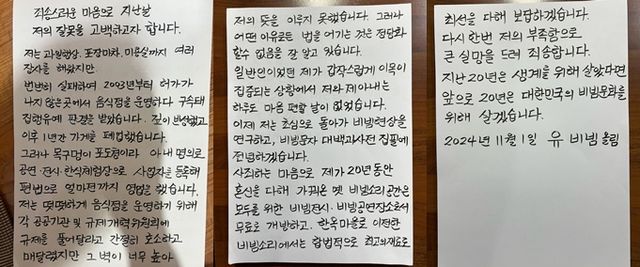 죄송스러운 마음으로 지난날
저의 잘못을 고백하고자 합니다.
저는 과일행상, 포장마차, 미용실까지 여러
장사를 해왔지만
번번히 실패하여 2003년부터 허가가
나지 않는곳에서 음식점을 운영하다 구속돼
집행유예 판결을 받았습니다. 깊이 반성했고
이후 1년간 가게를 폐업했습니다.
그러나 목구멍이 포도청이라 아내 명의로
공연·전시·한식체험장으로 사업자를 등록해
편법으로 얼마전까지 영업을 했습니다.
저는 떳떳하게 음식점을 운영하기 위해
각 공공기관 및 규제개혁위원회에
규제를 풀어달라고 간절히 호소하고
매달렸지만 그 벽이 너무 높아
저의 뜻을 이루지 못했습니다. 그러나
어떤 이유로든 법을 어기는 것은 정당화
할수 없음을 잘 알고 있습니다.
일반인이었던 제가 갑작스럽게 이목이
집중되는 상황에서 저와 제아내는
하루도 마음 편할 날이 없었습니다.
이제 저는 초심으로 돌아가 비빔현상을
연구하고, 비빔문자 대백과사전 집필에
전념하겠습니다.
사죄하는 마음으로 제가 20년동안
혼신을 다해 가꿔온 옛 비빔소리 공간은
모두를 위한 비빔전시·비빔공연장소로서
무료로 개방하고, 한옥마을로 이전한
비빔소리에서는 합법적으로 최고의재료로
최선을 다해 보답하겠습니다.
다시 한번 저의 부족함으로
큰 실망을 드려 죄송합니다.
지난 20년은 생계를 위해 살았다면
앞으로 20년은 대한민국의 비빔문화를
위해 살겠습니다.
2024년 11월 1일 유 비빔 올림